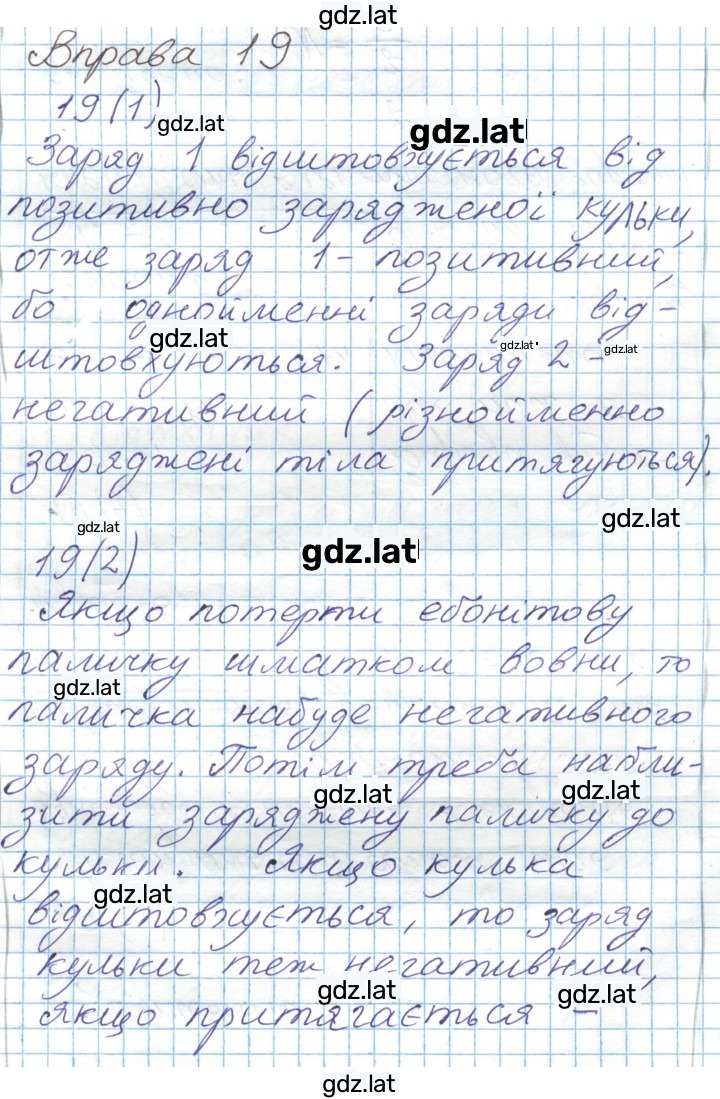 gdz.lat
Вправа 19
19(1)
gdz.lat
gdz.lat
Заряд 1 відштовхується від
позитивно зарядженої кульки,
отже заряд 1 - позитивний,
бо однойменні заряди від-
gdz.lat
gdz.lat
gdz.lat
штовхуються. Заряд 2 -
негативний (різнойменно
заряджені тіла притягуються).
gdz.lat
gdz.lat
gdz.lat
19(2)
Якщо потерти ебонітову
паличку шматком вовни, то
gdz.lat
паличка набуде негативного
заряду. Потім треба набли-
gdz.lat
gdz.lat
зити заряджену паличку до
кульки. Якщо кулька
gdz.lat
відштовхується, то заряд
кульки теж негативний,
gdz.lat
gdz.lat
якщо притягається -
gdz.lat